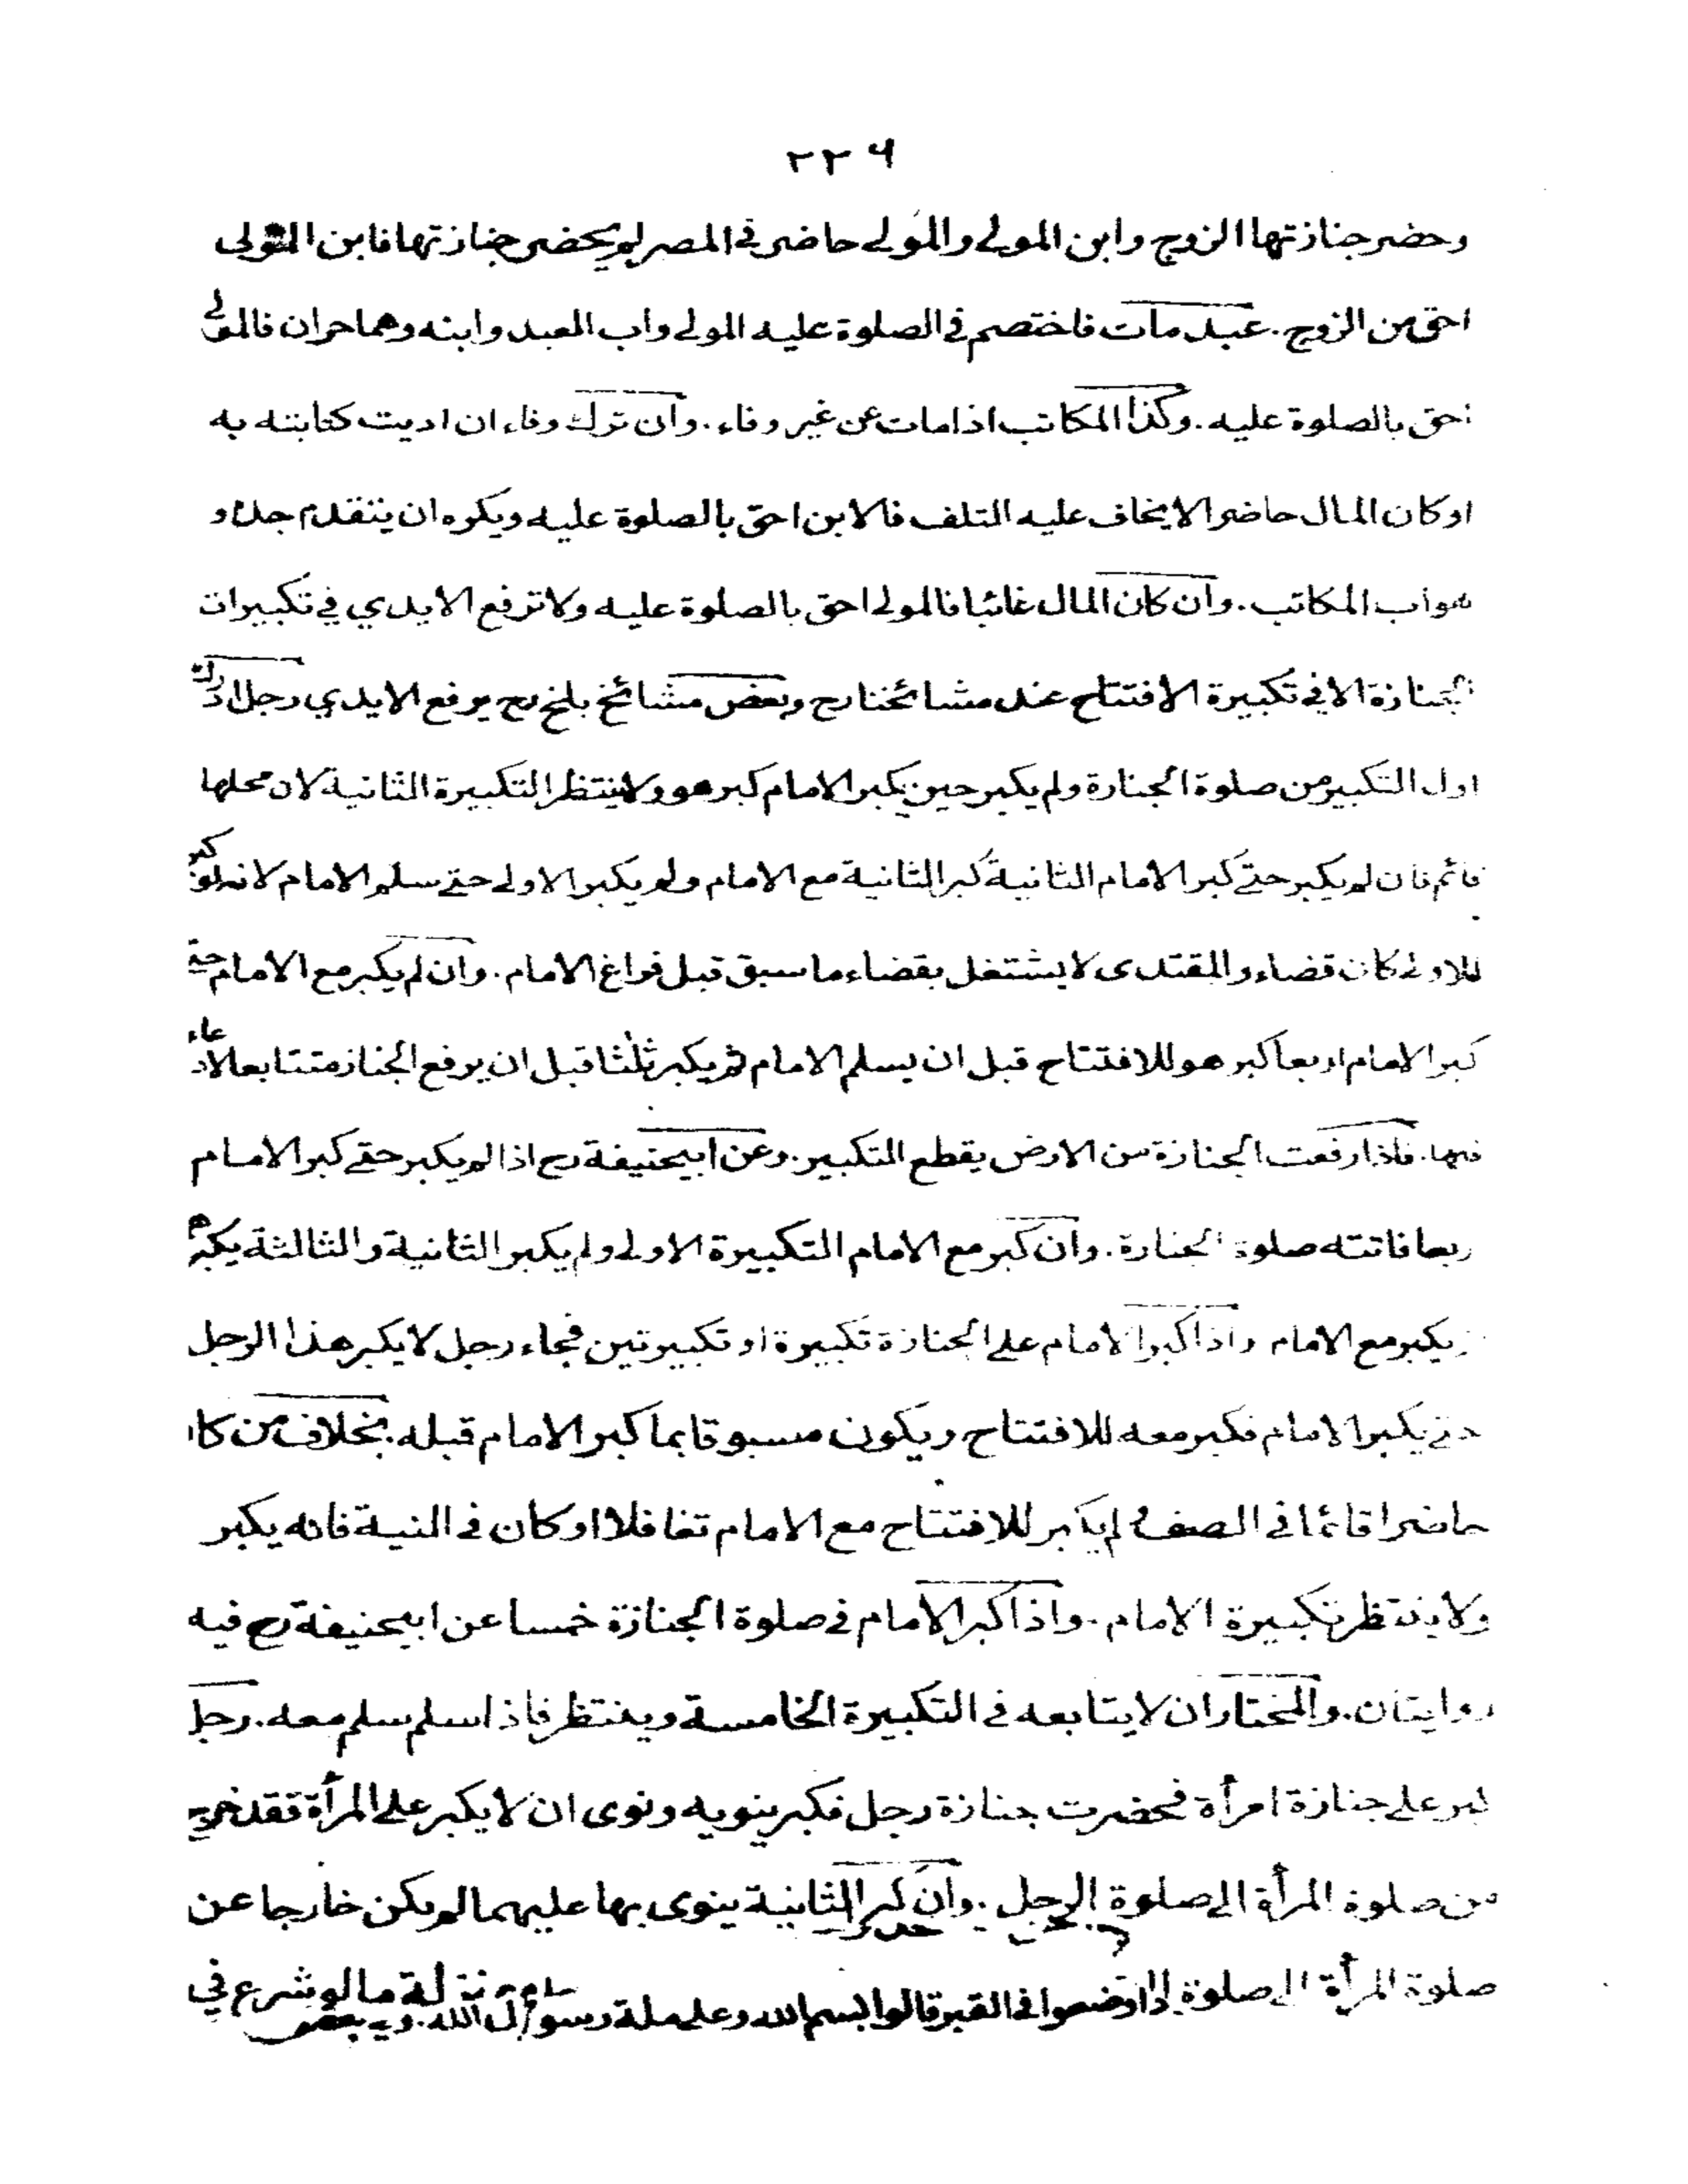 ٢٢٦
وحضر جنازتها الزوج وابن المولى والمولى حاضر في المصر لم يحضر جنازتها فابن المولى
احق من الزوج. عبد مات فاختصم في الصلوة عليه المولى واب العبد وابنه وهما حران فالمولى
احق بالصلوة عليه. وكذا المكاتب اذا مات عن غير وفاء. وان ترك وفاء ان اديت كتابته به
او كان المال حاضرا لا يخاف عليه التلف فالابن احق بالصلوة عليه ويكره ان يتقدم جده و
هو اب المكاتب. وان كان المال غائبا فالمولى احق بالصلوة عليه ولا ترفع الايدي في تكبيرات
الجنازة الا في تكبيرة الافتتاح عند مشائخنا رح وبعض مشائخ بلخ رح يرفع الايدي رجل ادرك
اول التكبير من صلوة الجنازة ولم يكبر حين يكبر الامام كبر هو ولا ينتظر التكبيرة الثانية لان محلها
قائم فان لم يكبر حتى كبر الامام الثانية كبر الثانية مع الامام ولم يكبر الاولى حتى سلم الامام لانه لو كبر
للاولى كان قضاء والمقتدى لا يشتغل بقضاء ما سبق قبل فراغ الامام. وان لم يكبر مع الامام حتى
كبر الامام اربعا كبر هو للافتتاح قبل ان يسلم الامام ثم يكبر ثلثا قبل ان يرفع الجنازة متتابعا لا دعاء
فيها. فاذا رفعت الجنازة من الارض يقطع التكبير. وعن ابيحنيفة رح اذا لم يكبر حتى كبر الامام
ربعا فاتته صلوة الجنازة. وان كبر مع الامام التكبيرة الاولى ولم يكبر الثانية والثالثة يكبرهما
يكبر مع الامام واذا كبر الامام على الجنازة تكبيرة او تكبيرتين فجاء رجل لا يكبر هذا الرجل
حتى يكبر الامام فكبر معه للافتتاح ويكون مسبوقا بما كبر الامام قبله. بخلاف من كان
حاضرا قائما في الصف لم يكبر للافتتاح مع الامام تغافلا او كان في النية فانه يكبر
ولا ينتظر تكبيرة الامام. واذا كبر الامام في صلوة الجنازة خمسا عن ابيحنيفة رح فيه
روايتان. والمختار ان لا يتابعه في التكبيرة الخامسة وينتظر فاذا سلم سلم معه. رجل
كبر على جنازة امرأة فحضرت جنازة رجل فكبر ينويه ونوى ان لا يكبر على المرأة فقد خرج
من صلوة المرأة الى صلوة الرجل. وان كبر الثانية ينوى بها عليهما لم يكن خارجا عن
صلوة المرأة الى صلوة نزلة ما لو شرع في
اذا وضعوا في القبر قالوا بسم الله وعلى ملة رسول الله.